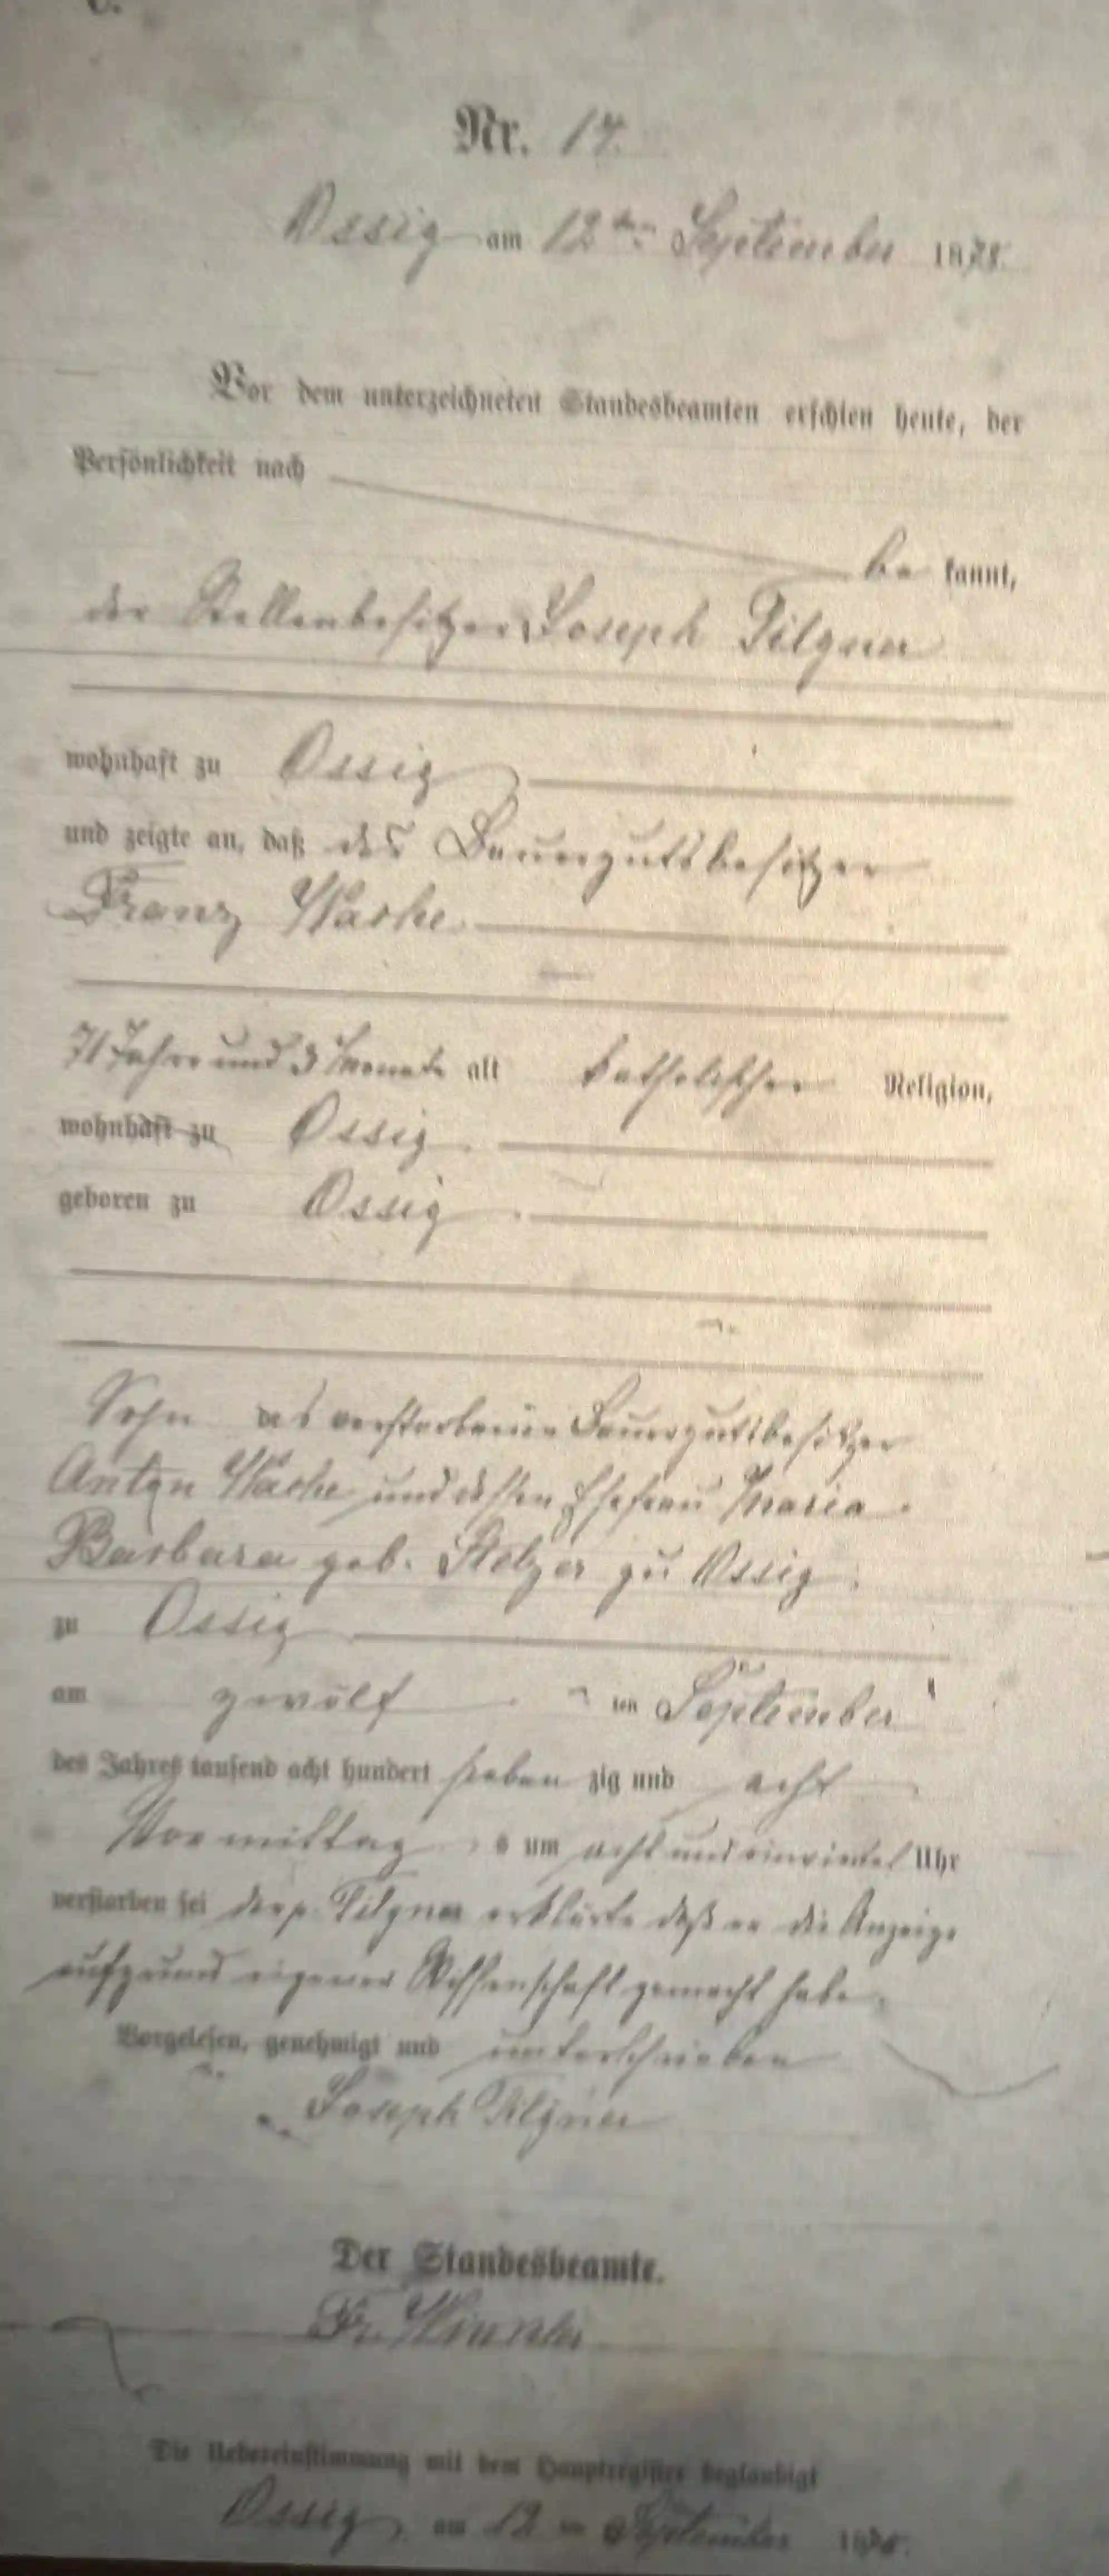 Nr. 17.
Ossig am 12ten September 1878.
Vor dem unterzeichneten Standesbeamten erschien heute, der
Persönlichkeit nach
be kannt,
der Stellenbesitzer Joseph Tilgner
wohnhaft zu Ossig
und zeigte an, daß des Bauergutsbesitzer
Franz Wache
71 Jahre und 3 Monate alt katholischer Religion,
wohnhaft zu Ossig
geboren zu Ossig
Sohn des verstorbenen Bauergutsbesitzer
Anton Wache und dessen Ehefrau Maria
Barbara geb. Stelzer zu Ossig.
zu Ossig
am zwölf ten September
des Jahres tausend acht hundert sieben zig und acht
Vormittag s um acht und einviertel Uhr
verstorben sei der p. Tilgner erklärte daß er die Anzeige
aufgrund eigener Wissenschaft gemacht habe.
Vorgelesen, genehmigt und unterschrieben
Joseph Tilgner
Der Standesbeamte.
Fr. Winkler
Die Uebereinstimmung mit dem Hauptregister beglaubigt
Ossig, am 12 ten September 1878.